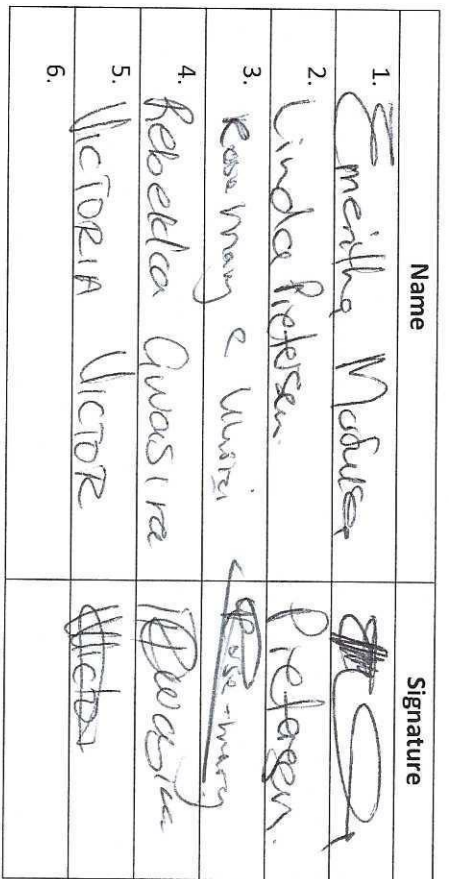 Name Signature
1. Emeritha
2. Linda Pietersen. Pietersen.
3. Rosemary c Rose-mary
4. Rebekka Gwasira
5. VICTORIA VICTOR Victor
6.